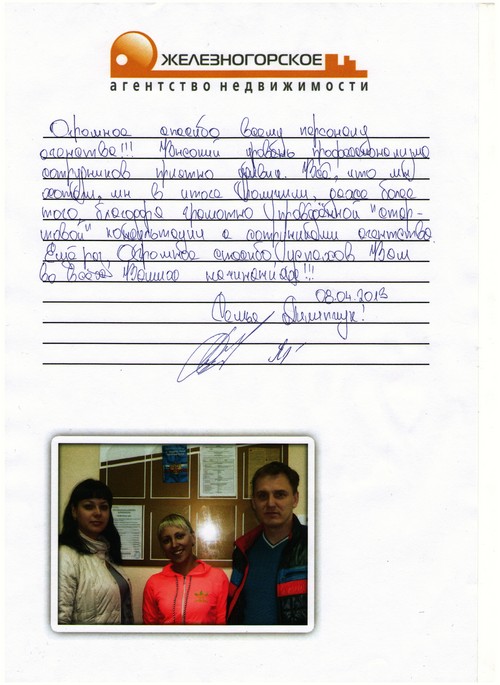 ЖЕЛЕЗНОГОРСКОЕ
агентство недвижимости
Огромное спасибо всему персоналу
агенства!!! Высокий уровень профессионализма
сотрудников приятно удивил. Всё, что мы
хотели, мы в итоге получили, даже более
того благодаря грамотно проведённой "стар-
товой" консультации с сотрудниками агентства.
Ещё раз Огромное спасибо, успехов Вам
во всех Ваших начинаниях!!!
08.04.2013
Семья !